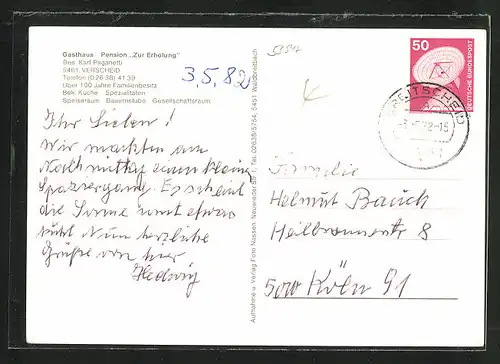 Gasthaus Pension „Zur Erholung"
Bes. Karl Paganetti
5461 VERSCHEID
Telefon (0 26 38) 41 39
Über 100 Jahre Familienbesitz
Bek. Küche Spezialitäten
Speiseraum Bauernstube Gesellschaftsraum
3.5.82
Ihr Lieben!
Wir machten am
Nachmittag einen kleinen
Spaziergang. Es scheint
die Sonne sonst etwas
kühl. Nun herzliche
Grüße von hier
Hedwig
Aufnahme u. Verlag Foto Nossen
50
DEUTSCHE BUNDESPOST
BREITSCHEID
Familie
Helmut Bauch
Heilbronnerstr 8
5000 Köln 91